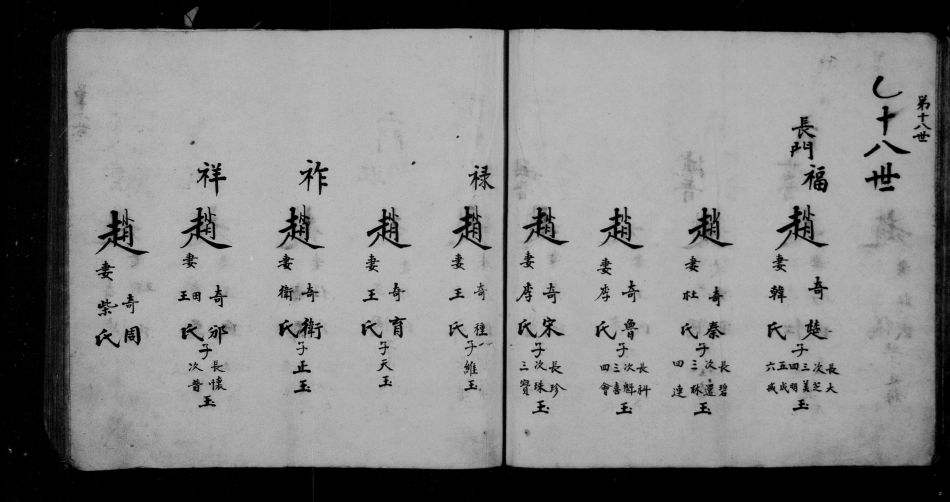 第十八世
乚十八世
長門
福
趙奇楚
妻韓氏
子
長大
次芝
三美
四羽
五成
六
玉
趙奇秦
妻杜氏
子
長碧
次還
三琳
四連
玉
趙奇魯
妻李氏
子
長科
次
三喜
四會
玉
趙奇宋
妻李氏
子
長珍
次珠
三寶
玉
禄
趙奇
妻王氏
子維玉
趙奇育
妻王氏
子天玉
祚
趙奇衛
妻衛氏
子正玉
祥
趙奇邠
妻田王氏
子
長懷
次普
玉
趙奇周
妻柴氏